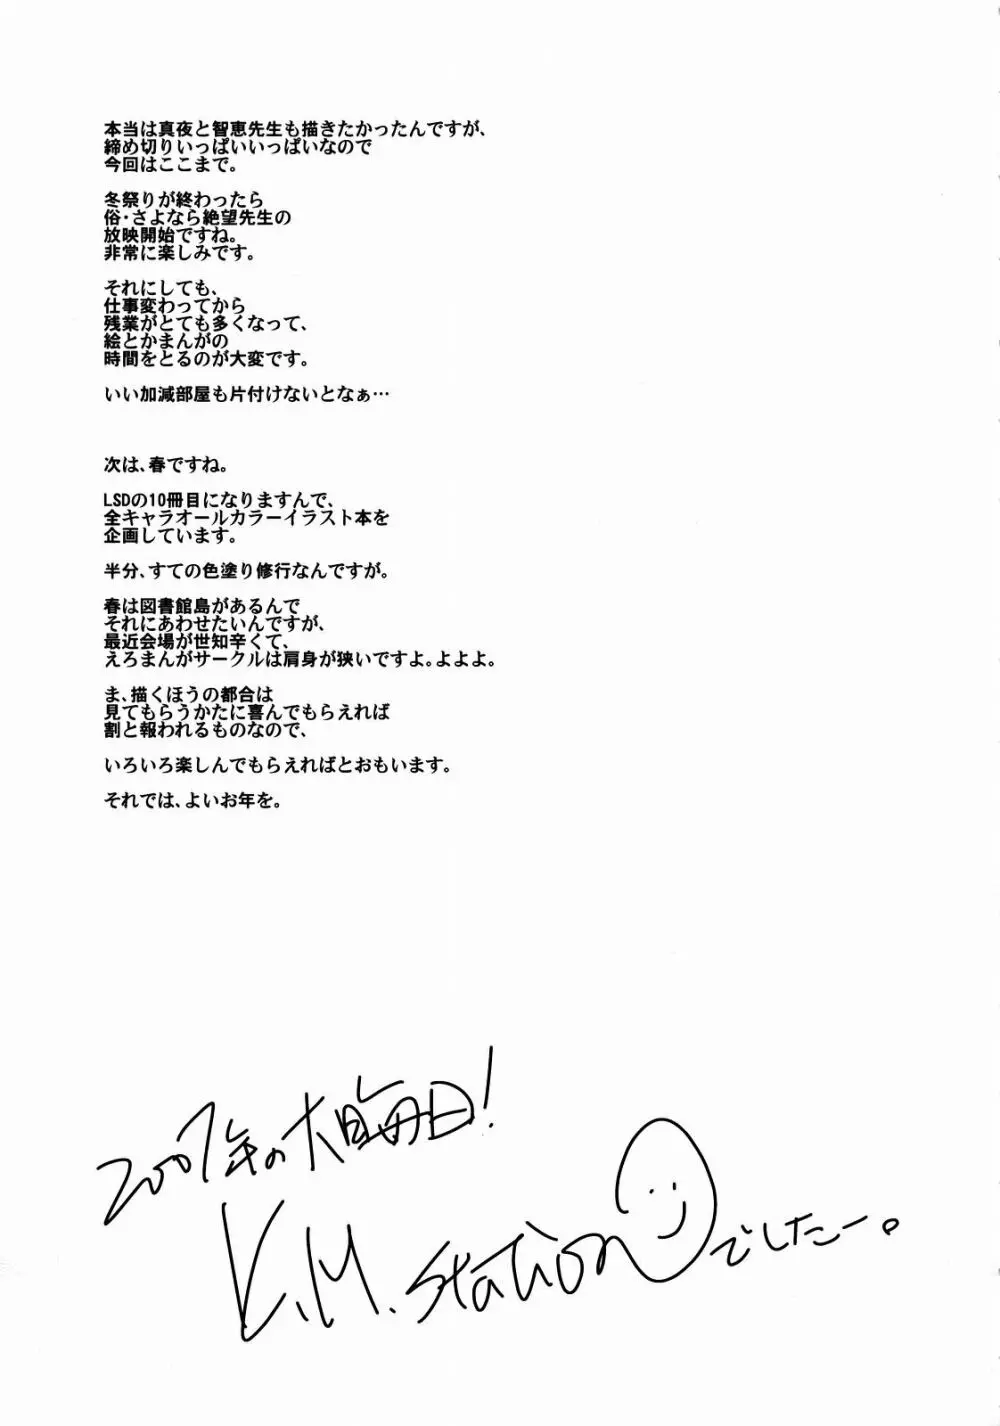 本当は真夜と智恵先生も描きたかったんですが、
締め切りいっぱいいっぱいなので
今回はここまで。
冬祭りが終わったら
俗・さよなら絶望先生の
放映開始ですね。
非常に楽しみです。
それにしても、
仕事変わってから
残業がとても多くなって、
絵とかまんがの
時間をとるのが大変です。
いい加減部屋も片付けないとなぁ…
次は、春ですね。
LSDの10冊目になりますんで、
全キャラオールカラーイラスト本を
企画しています。
半分、すての色塗り修行なんですが。
春は図書館島があるんで
それにあわせたいんですが、
最近会場が世知辛くて、
えろまんがサークルは肩身が狭いですよ。よよよ。
ま、描くほうの都合は
見てもらうかたに喜んでもらえれば
割と報われるものなので、
いろいろ楽しんでもらえればとおもいます。
それでは、よいお年を。
2007年の大晦日！
K.M.station
でしたー。